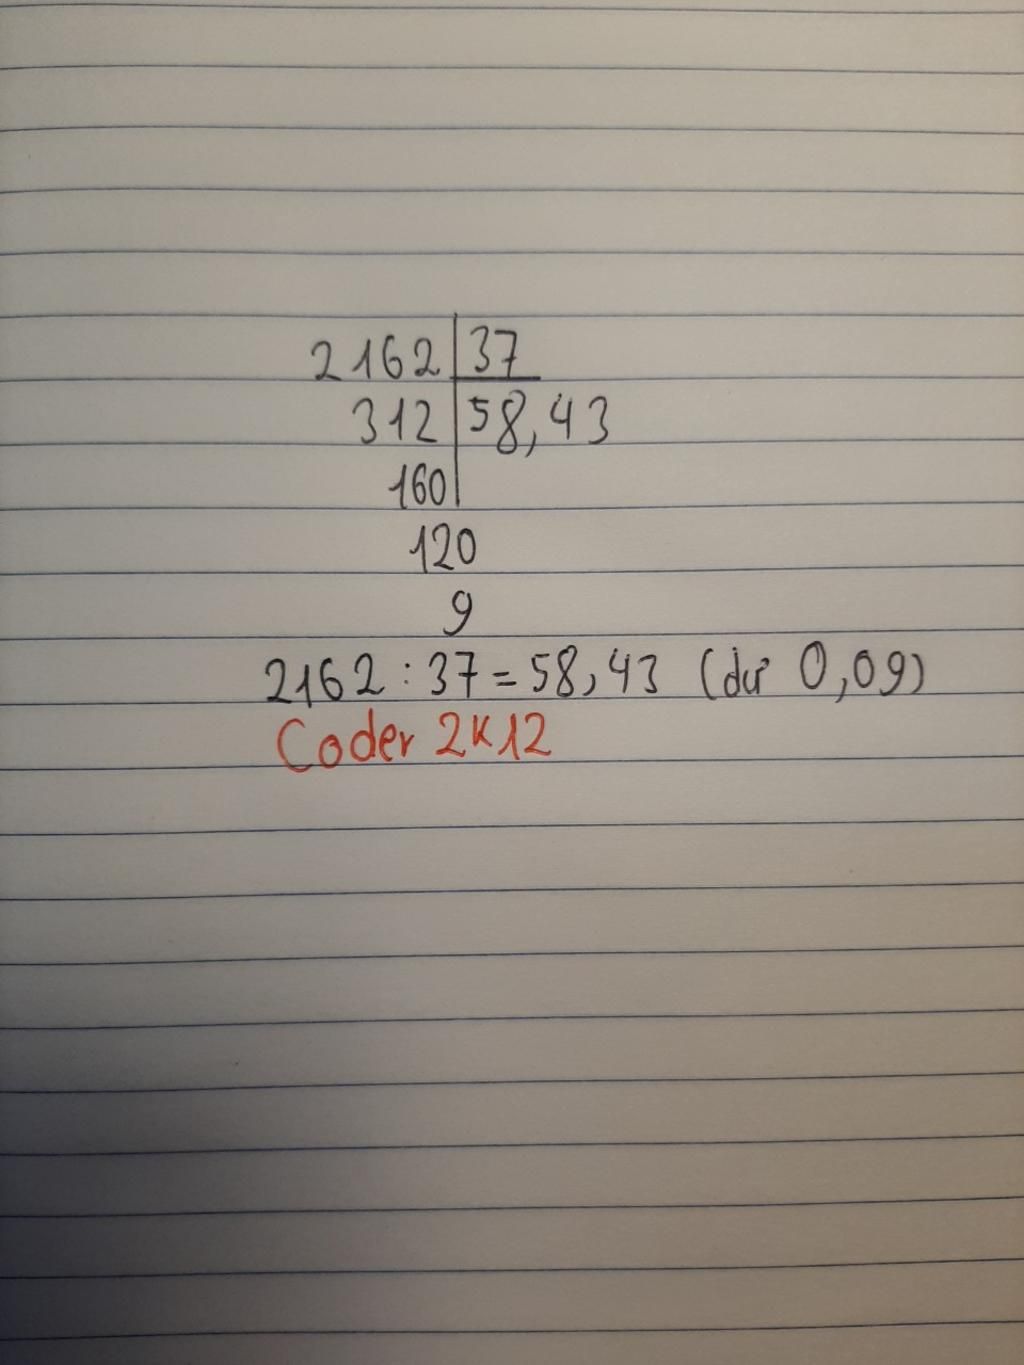 2162 37
312 58,43
160
120
9
2162 : 37 = 58,43 (dư 0,09)
Coder 2K12